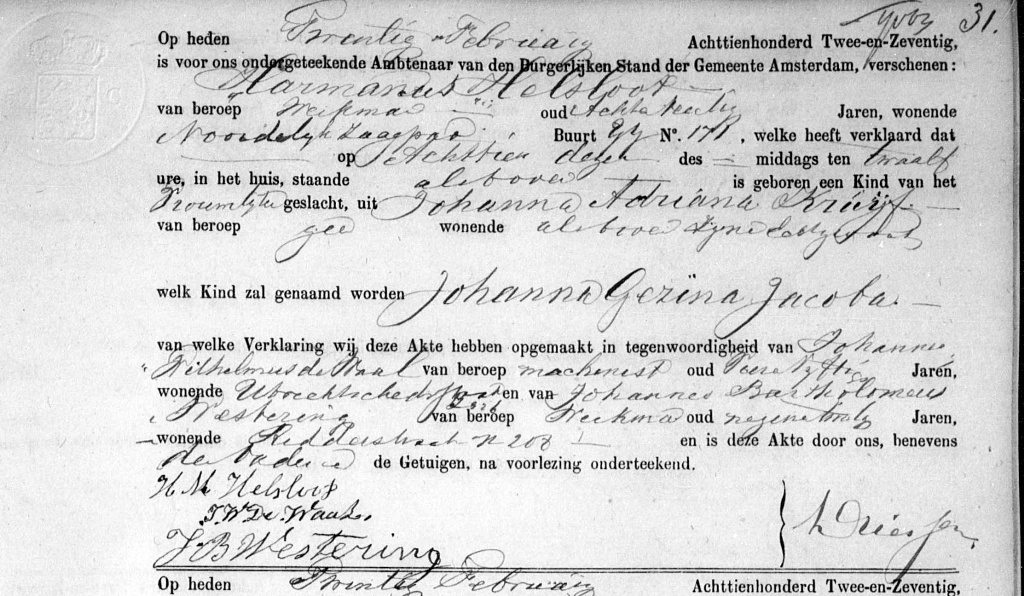 31.
Op heden Twentig Februarij Achttienhonderd Twee-en-Zeventig,
is voor ons ondergeteekende Ambtenaar van den Burgerlijken Stand der Gemeente Amsterdam, verschenen:
Harmanus Helsloot
van beroep Werkman oud Jaren, wonende
Noordelyk Zaagpad Buurt No. 171, welke heeft verklaard dat
op Achttien dezer des — middags ten twaalf
ure, in het huis, staande alsboven is geboren een Kind van het
Vrouwelyke geslacht, uit Johanna Adriana Kruijf
van beroep gee wonende alsboven zyne echtgenoot
welk Kind zal genaamd worden Johanna Gezina Jacoba
van welke Verklaring wij deze Akte hebben opgemaakt in tegenwoordigheid van Johannes
Wilhelmus de Waal van beroep machenist oud Jaren,
wonende Utrechtsche en van Johannes Bartholomeus
Westering van beroep Werkman oud Jaren,
wonende Ridderstraat n 208 en is deze Akte door ons, benevens
de vader en de Getuigen, na voorlezing onderteekend.
H Helsloot
J. W. De Waal.
J B Westering
Driessen
Op heden Twentig Februarij Achttienhonderd Twee-en-Zeventig,